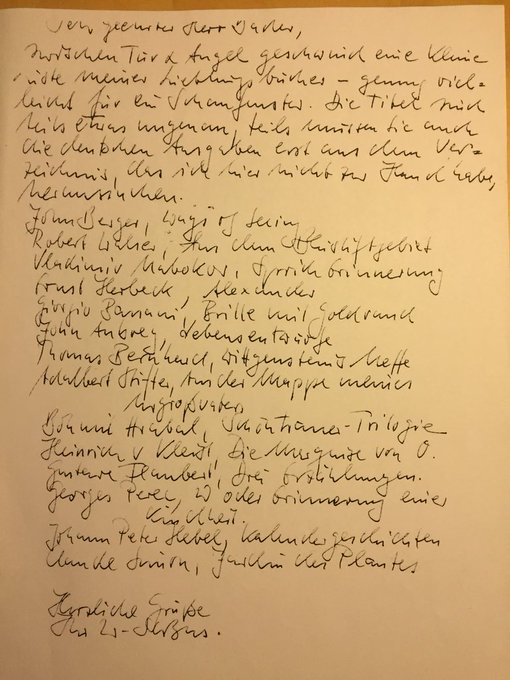 Sehr geehrter Herr
zwischen Tür & Angel geschwind eine kleine
Liste meiner Lieblingsbücher – genug viel-
leicht für ein Schaufenster. Die Titel sind
teils etwas ungenau, teils müssen Sie auch
die deutschen Ausgaben erst aus dem Ver-
zeichnis, das ich hier nicht zur Hand habe,
heraussuchen.
John Berger, Ways of Seeing
Robert Walser, Aus dem Bleistiftgebiet
Vladimir Nabokov, Sprich Erinnerung
Ernst Herbeck, Alexander
Giorgio Bassani, Brille mit Goldrand
John Aubrey, Lebensentwürfe
Thomas Bernhard, Wittgensteins Neffe
Adalbert Stifter, Aus der Mappe meines
Urgroßvaters
Bohumil Hrabal, Schöntrauer-Trilogie
Heinrich v Kleist, Die Marquise von O.
Gustave Flaubert, Drei Erzählungen.
Georges Perec, W oder Erinnerung einer
Kindheit.
Johann Peter Hebel, Kalendergeschichten
Claude Simon, Jardin des Plantes
Herzliche Grüße
Ihr